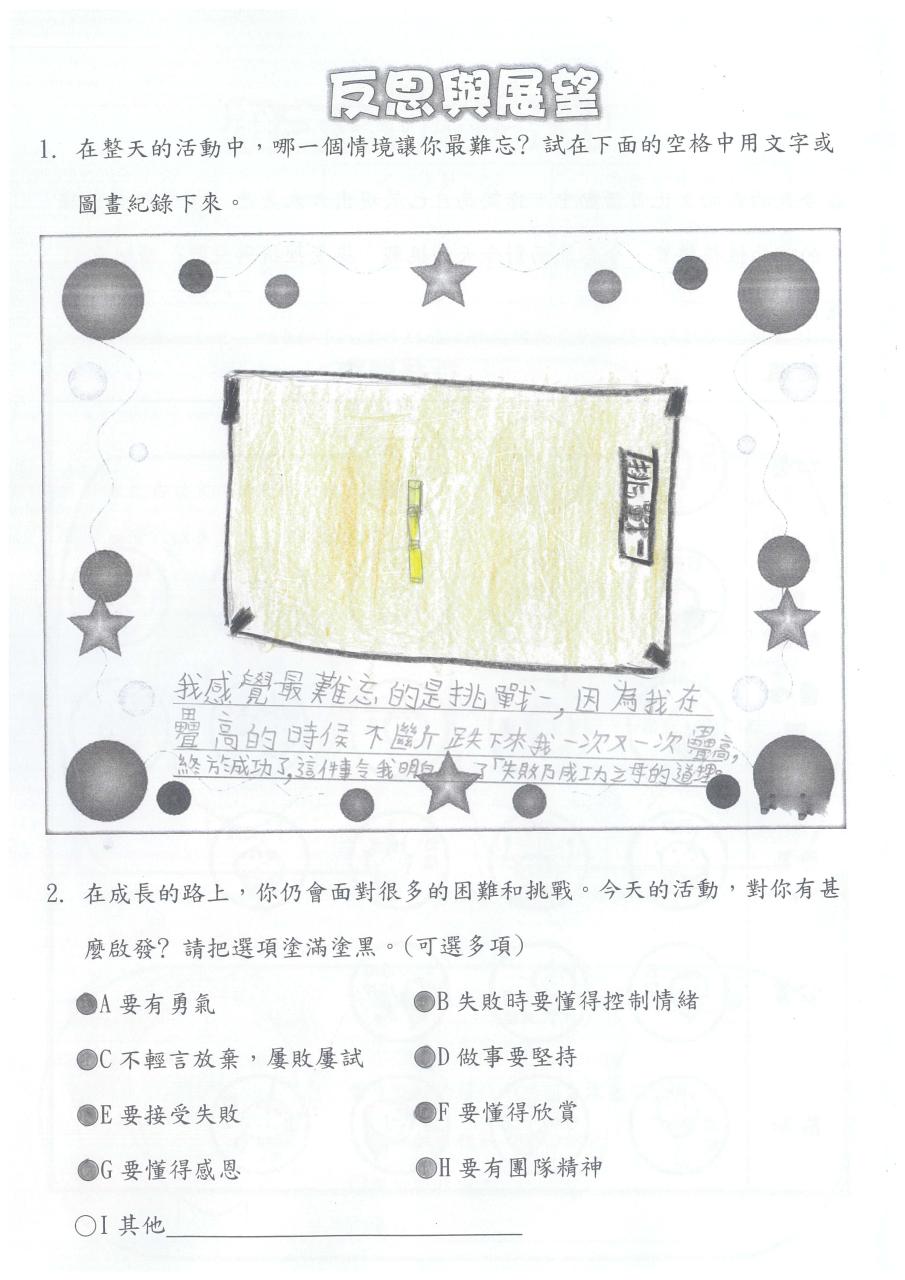 反思與展望
1. 在整天的活動中，哪一個情境讓你最難忘? 試在下面的空格中用文字或
圖畫紀錄下來。
挑戰一
我感覺最難忘的是挑戰一,因為我在
疊高的時候不斷跌下來我一次又一次疊高,
終於成功了,這件事令我明白了「失敗乃成功之母的道理。
2. 在成長的路上，你仍會面對很多的困難和挑戰。今天的活動，對你有甚
麼啟發? 請把選項塗滿塗黑。(可選多項)
A 要有勇氣 B 失敗時要懂得控制情緒
C 不輕言放棄，屢敗屢試 D 做事要堅持
E 要接受失敗 F 要懂得欣賞
G 要懂得感恩 H 要有團隊精神
○I 其他